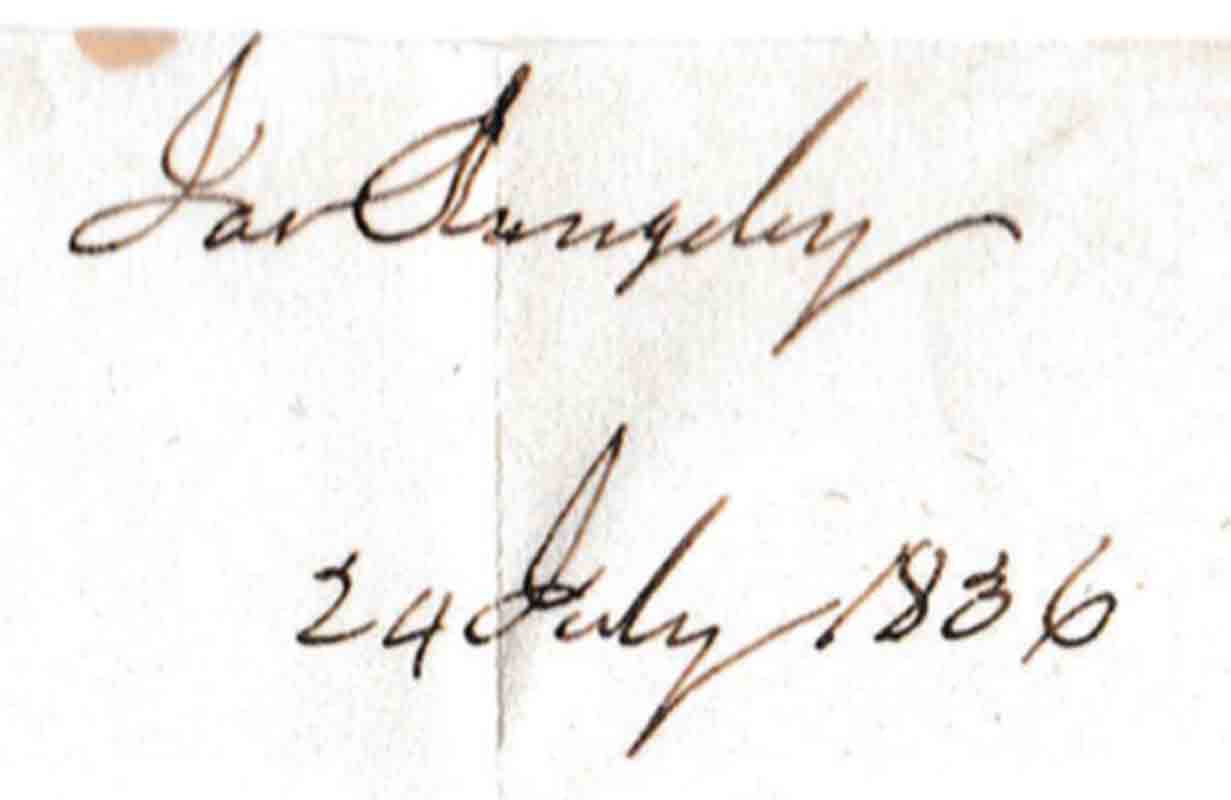 Jas
24 July 1836